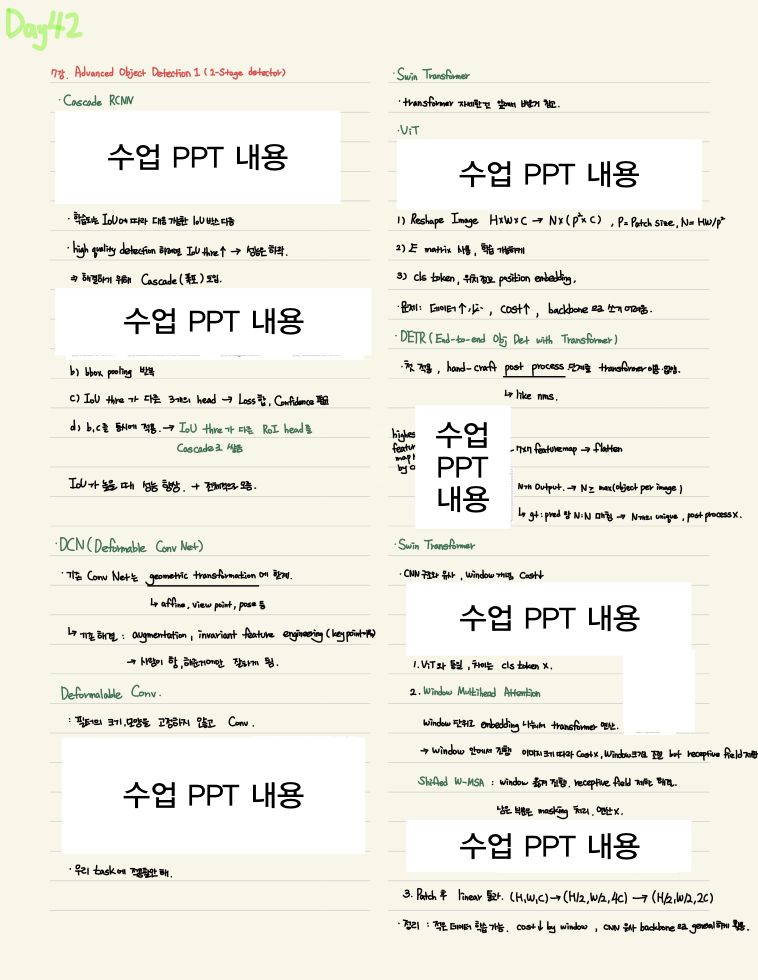 Day42
7강. Advanced Object Detection 1 (2-Stage detector)
· Cascade RCNN
수업 PPT 내용
· 학습되는 IoU에 따라 대응 가능한 IoU 박스 다름
· high quality detection 하려면 IoU thre ↑ → 성능은 하락.
⇒ 해결하기 위해 Cascade (폭포) 도입.
수업 PPT 내용
b) bbox pooling 반복
c) IoU thre가 다른 3개의 head → Loss 합, Confidence 평균
d) b,c를 동시에 적용. → IoU thre가 다른 RoI head를
Cascade로 쌓음
IoU가 높을 때 성능 향상. → 전체적으로 오름.
· DCN (Deformable Conv Net)
· 기존 Conv Net는 geometric transformation에 한계.
↳ affine, view point, pose 등
↳ 기존 해결 : augmentation, invariant feature engineering (key point
→ 사람이 함, 해준거에만 잘하게 됨.
Deformalable Conv.
: 필터의 크기, 모양을 고정하지 않고 Conv.
수업 PPT 내용
· 우리 task에 적용
· Swin Transformer
· transformer 자세한건
· ViT
수업 PPT 내용
1) Reshape Image H×W×C → N×(P²×C) , P=Patch size, N= HW/P²
2) E matrix 사용, 학습 가능하게
3) cls token, 위치정보 position embedding.
· 문제 : 데이터 ↑ , cost ↑ , backbone으로 쓰기 어려움.
· DETR (End-to-end Obj Det with Transformer)
· 첫 적용, hand-craft post process 단계를 transformer 이용
↳ like nms.
highes
featur
map
by
수업
PPT
내용
7×7 featuremap → flatten
N개 Output. → N ≥ max(object per image)
↳ gt : pred 와 N:N 매핑 → N개의 unique, post process X.
· Swin Transformer
· CNN 구조와 유사, Window 개념. Cost↓
수업 PPT 내용
1. ViT와 동일, 차이는 cls token X.
2. Window Multihead Attention
window 단위로 embedding 나눠서 transformer 연산.
→ Window 안에서 진행 이미지 크기 따라 Cost X, Window 크기로 조절 but receptive field 제한
Shifted W-MSA : window 옮겨 진행. receptive field 제한 해결.
남은 부분은 masking 처리. 연산 X.
수업 PPT 내용
3. Patch 후 linear 통과. (H,W,C) → (H/2, W/2, 4C) → (H/2, W/2, 2C)
· 정리 : 적은 데이터 학습 가능. cost ↓ by window , CNN 유사 backbone으로 general하게 활용.